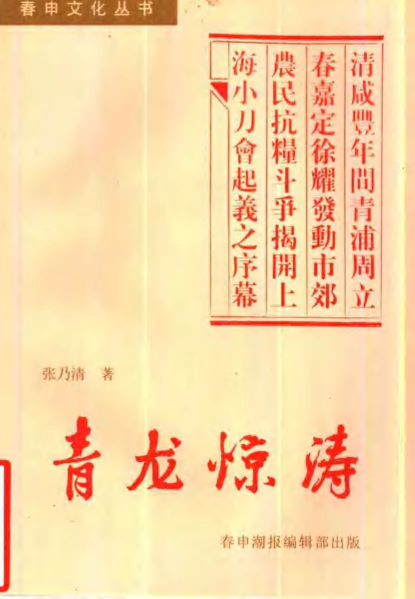 春申文化丛书
清咸豐年間青浦周立
春嘉定徐耀發動市郊
農民抗糧斗爭揭開上
海小刀會起義之序幕
张乃清 著
青龙惊涛
春申潮报编辑部出版